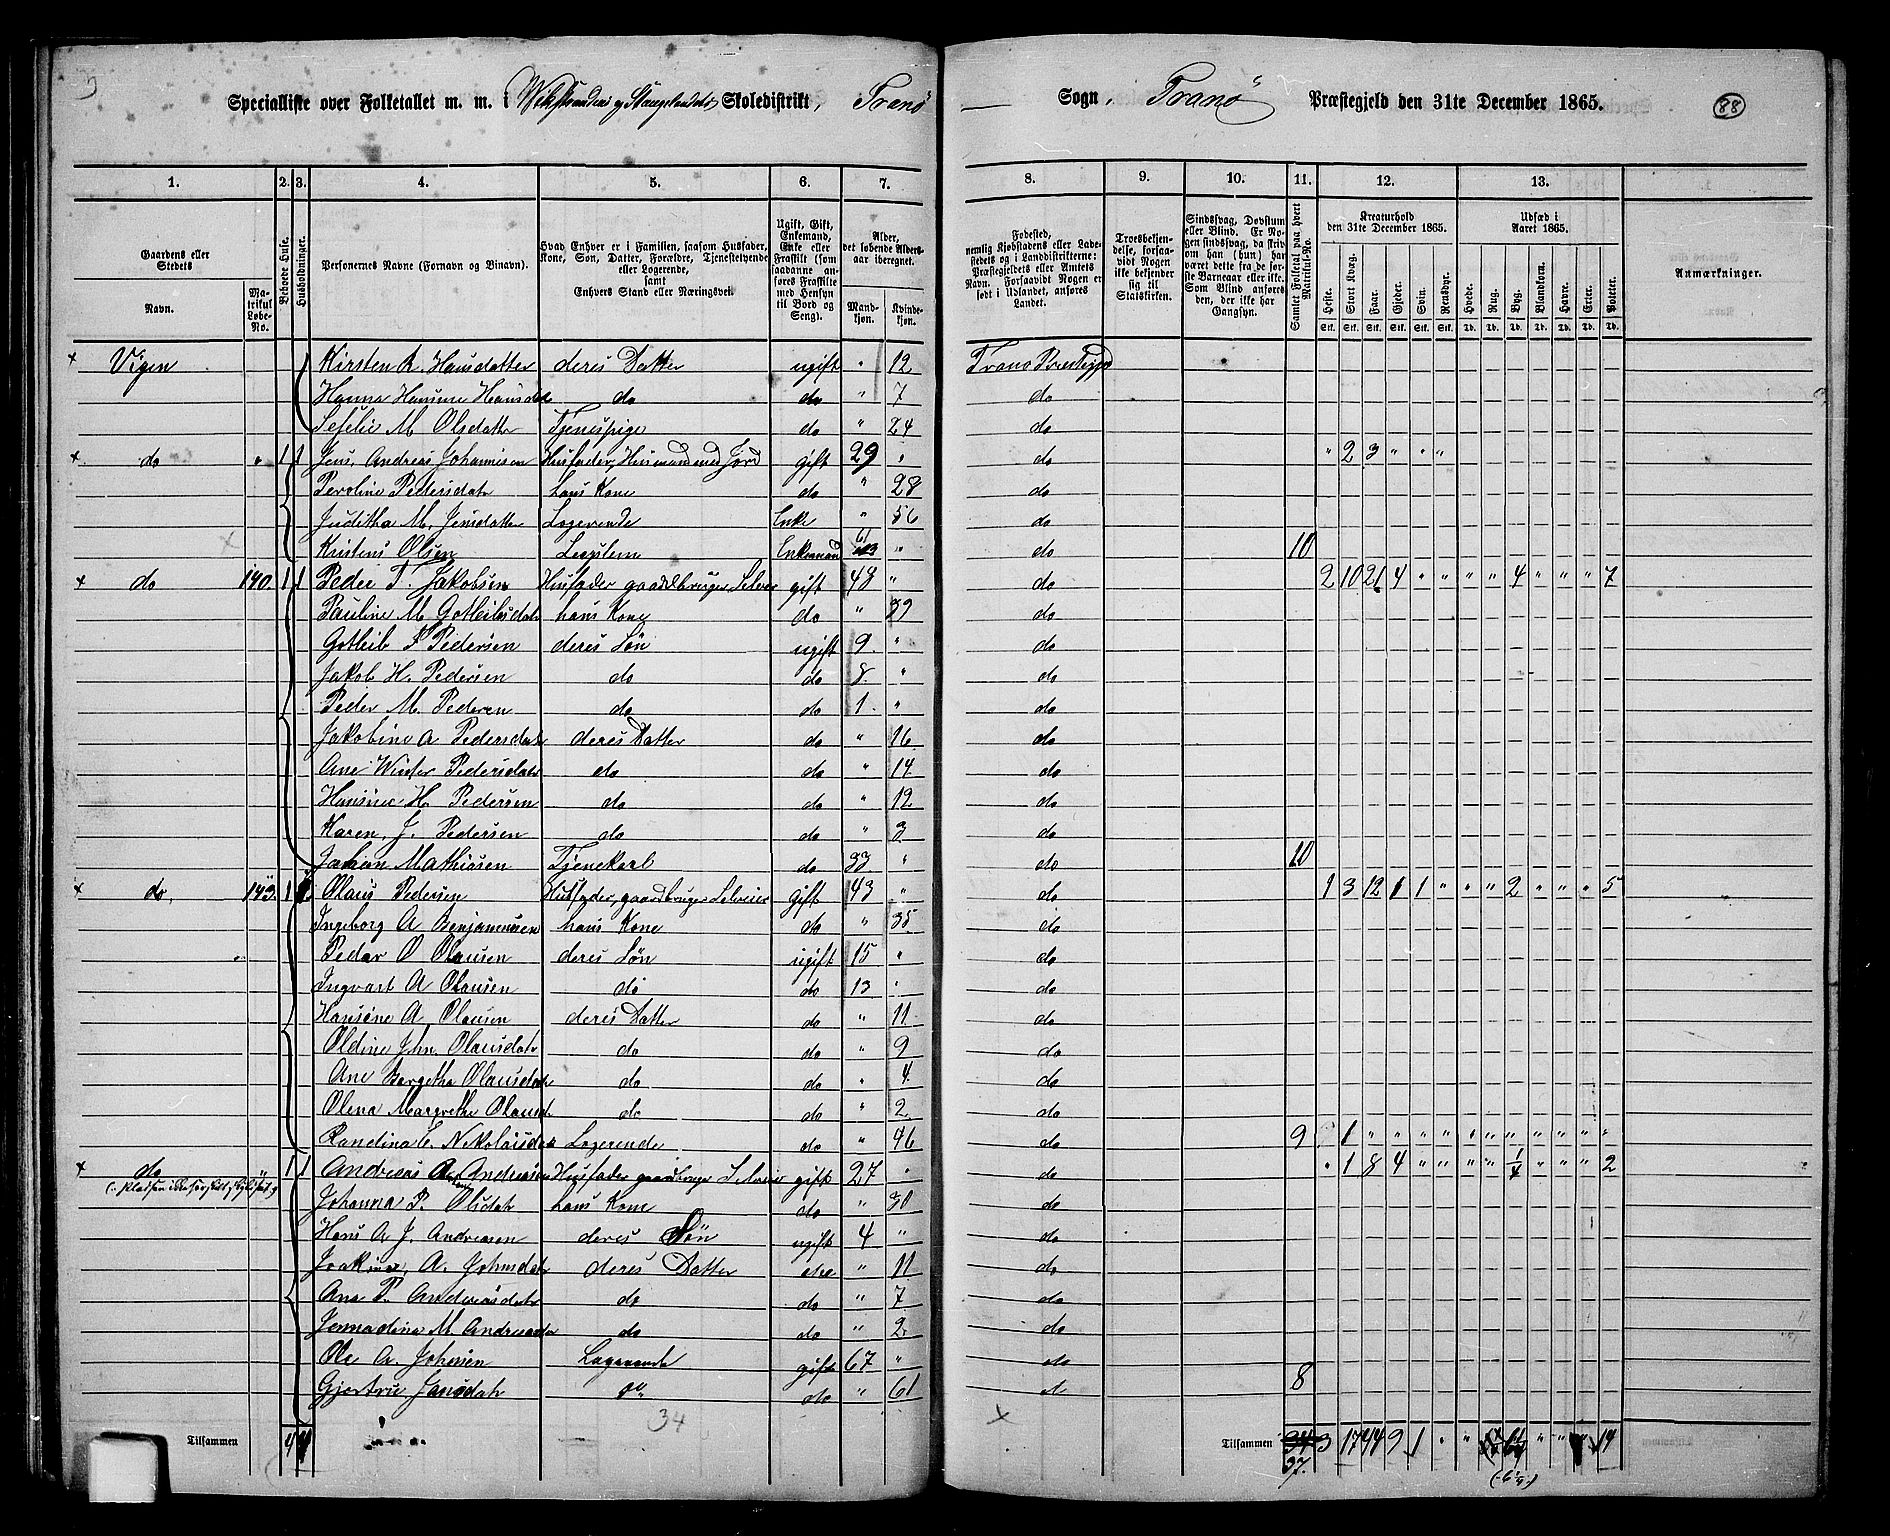 Specialliste over Folketallet m. m. i Skoledistrikt, Tranö Sogn, Tranö Præstegjeld den 31te December 1865. 88
1. 2. 3. 4. 5. 6. 7. 8. 9. 10. 11. 12. 13.
Gaardens eller Stedets Navn. Matrikul Løbe-No. Beboede Huse. Husholdninger. Personernes Navne (Fornavn og Binavn). Hvad Enhver er i Familien, saasom Husfader, Kone, Søn, Datter, Forældre, Tjenestetyende eller Logerende, samt Enhvers Stand eller Næringsvei. Ugift, Gift, Enkemand, Enke eller Fraskilt (som saadanne anføres Fraskilte med Hensyn til Bord og Seng). Alder, det løbende Aldersaar iberegnet. Mandkjøn. Kvindekjøn. Fødested, nemlig Kjøbstadens eller Ladestedets og i Landdistrikterne: Præstegjeldets eller Amtets Navn. Forsaavidt Nogen er født i Udlandet, anføres Landet. Troesbekjendelse, forsaavidt Nogen ikke bekjender sig til Statskirken. Sindssvag, Døvstum eller Blind. Er Nogen sindssvag, da skrives om han (hun) har været dette fra de første Barneaar eller ikke. Som Blind anføres den, der ikke har Gangsyn. Samlet Folketal paa hvert Matrikul-No. Kreaturhold den 31te December 1865. Heste. Stort Kvæg. Faar. Gjeder. Svin. Rensdyr. Udsæd i Aaret 1865. Hvede. Rug. Byg. Blandkorn. Havre. Erter. Poteter. Anmærkninger.
Stk. Stk. Stk. Stk. Stk. Stk. Td. Td. Td. Td. Td. Td. Td.
× Vigen Kirsten A. Hansdatter deres Datter ugift " 12 Tranö
Hanna Hansine do do " 7 do
M. Olsdatter Tjenestpige do " 24 do
× do " 1 1 Jens Andreas Johannisen Husfader, Husmand med Jord gift 29 " do " 2 3 " " "
Peroline Pedersdatr hans Kone do " 28 do
Juditha M. Jensdatter Logerende Enke " 56 do
Kristens Olsen Lægslem Enkemand 61 " do 10
× do 140. 1 1 Peder T. Jakobsen Husfader gaardbruger Selveier gift 48 " do 2 10 21 4 " " " " 4 " " " 7
Pauline M. hans Kone do " 39 do
Gotleib Pedersen deres Søn ugift 9 " do
Jakob H. Pedersen do do 8 " do
Peder M. Pedersen do do 1 " do
Jakobine A Pedersdatr deres Datter do " 16 do
Ane Winter Pedersdatr do do " 14 do
Hansine H. Pedersen do do " 12 do
Karen J. Pedersen do do " 3 do
Johan Mathisen Tjenekarl do 33 " do 10
× do, 143. 1 1 Olaus Pedersen Husfader, gaardbruger Selveier gift 43 " do 1 3 12 1 1 " " " 2 " " " 5
Ingeborg A Benjaminsen hans Kone do " 35 do
Peder O Olausen deres Søn ugift 15 " do
Ingvart A Olausen do do 13 " do
Hansine A Olausen deres Datter do " 11 do
Oldine Jhn. Olausdatr do do " 9 do
Ane Bergetha Olausdatr do do " 4 do
Olena Margrethe Olausd. do do " 2 do
Randina E. Nikolaisdatr Logerende do " 46 do 9 1 " " " " " " " " " " "
× do " 1 1 Andreas Andreasen Husfader gaardbruger Selveier gift 27 " do " 1 8 4 " " " " 1/4 " " " 2
Johanna P. Olsdatr hans Kone do " 30 do
Hans A J. Andreasen deres Søn ugift 4 " do
A. Johnsdatr deres Datter do " 11 do
Ane P. Andreasdatr do do " 7 do
M. do do " 2 do
Ole A. Johnsen Logerende gift 67 " do
Gjertrue Jansdatr do do " 61 do 8
34
Tilsammen 4 4 Tilsammen 34 3 17 44 9 1 " " " 6 1/4 " " " 14
37. (6 1/4)